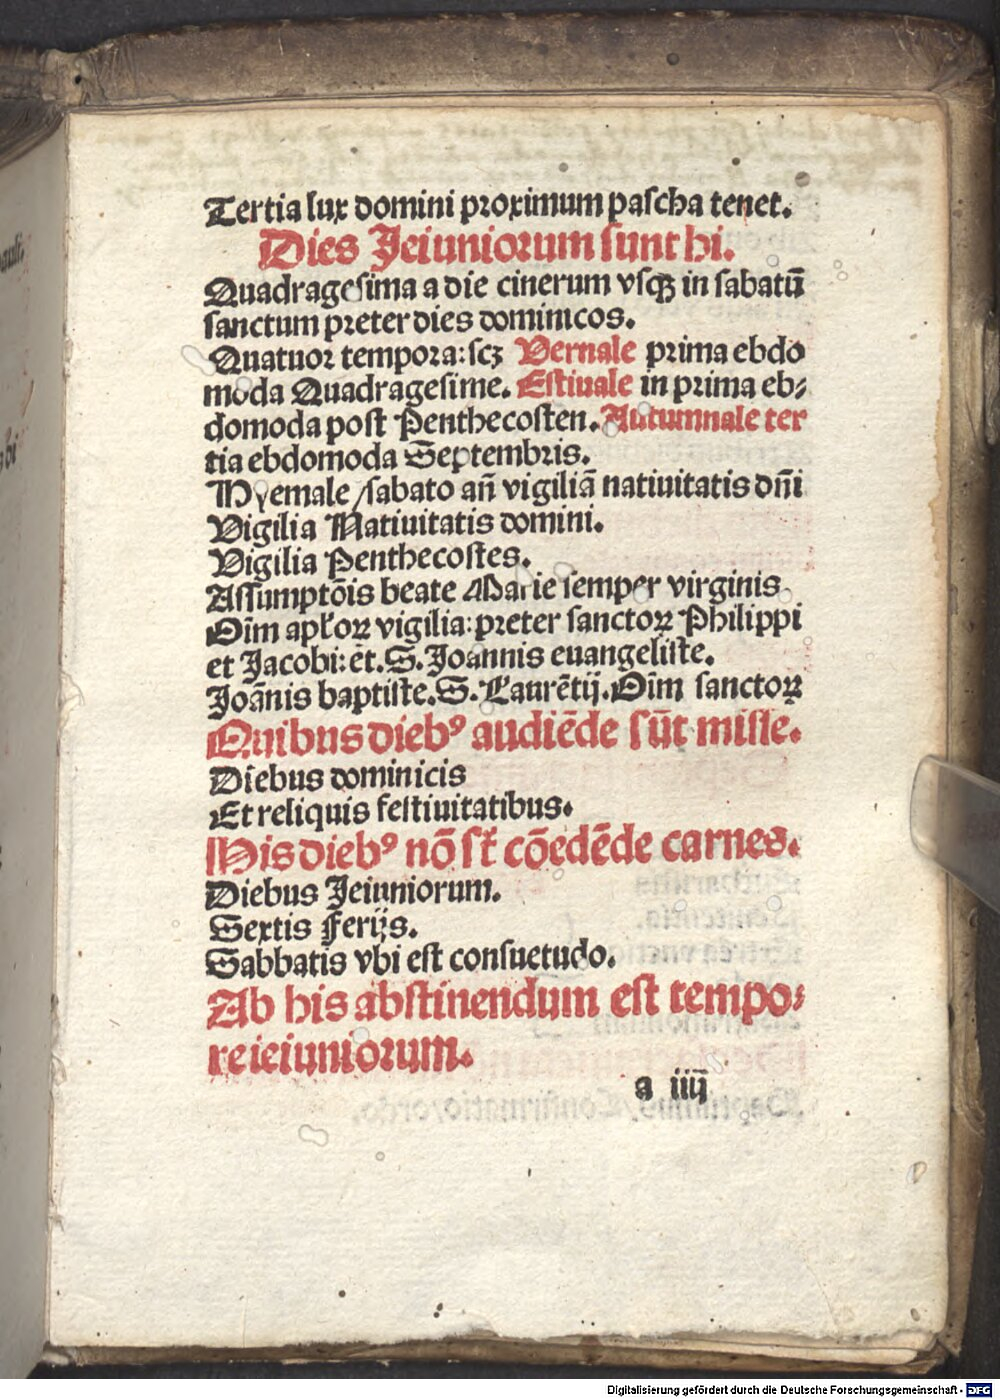 Tertia lux domini proximum pascha tenet.
Dies Jeiuniorum sunt hi.
Quadragesima a die cinerum vsqꝫ in sabatū
sanctum preter dies dominicos.
Quatuor tempora: scꝫ Vernale prima ebdo
moda Quadragesime. Estiuale in prima eb⸗
domoda post Penthecosten. Autumnale ter
tia ebdomoda Septembris.
Hyemale / sabato añ vigiliā natiuitatis dñi
Vigilia Natiuitatis domini.
Vigilia Penthecostes.
Assumptōis beate Marie semper virginis
Oīm apłoꝝ vigilia: preter sanctoꝝ Philippi
et Jacobi: et. S. Joannis euangeliste.
Joānis baptiste. S. Laurētij. Oīm sanctoꝝ
Quibus diebꝰ audiēde sūt misse.
Diebus dominicis
Et reliquis festiuitatibus.
His diebꝰ nō st̄ cōedēde carnes.
Diebus Jeiuniorum.
Sextis ferijs.
Sabbatis vbi est consuetudo.
Ab his abstinendum est tempo⸗
re ieiuniorum.
a iiij
Digitalisierung gefördert durch die Deutsche Forschungsgemeinschaft - DFG